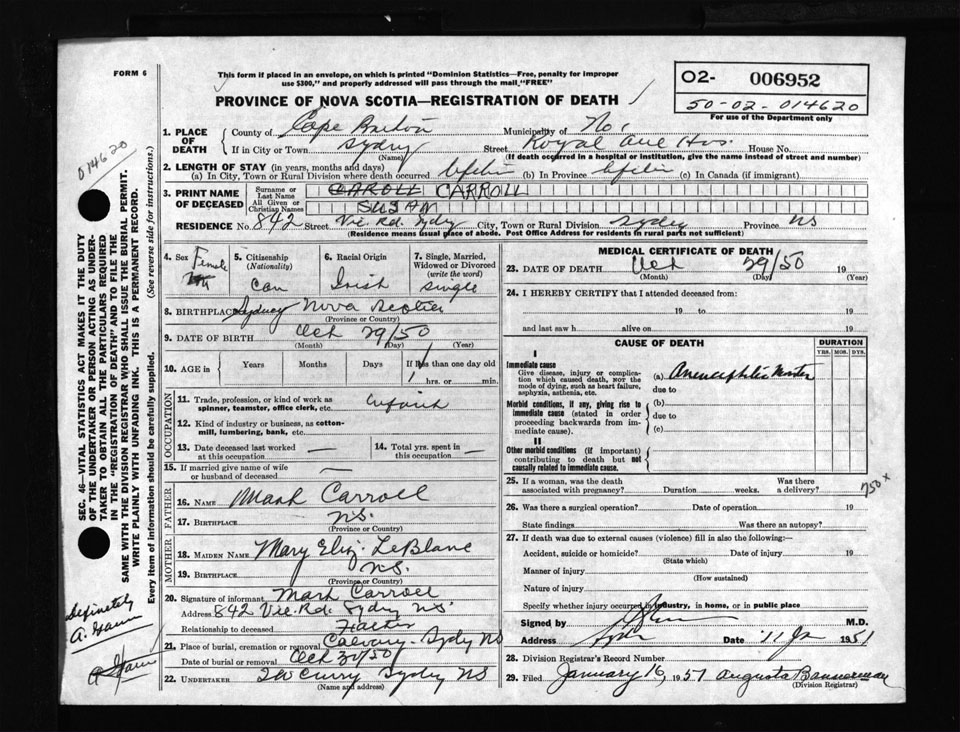 FORM 6
This form if placed in an envelope, on which is printed "Dominion Statistics—Free, penalty for improper
use $300," and properly addressed will pass through the mail, "FREE"
PROVINCE OF NOVA SCOTIA—REGISTRATION OF DEATH
O2- 006952
50-02-014620
For use of the Department only
014620
1. PLACE OF DEATH
County of Cape Breton Municipality of No.
If in City or Town Sydney Street Royal Ave Hos. House No.
(Name) (If death occurred in a hospital or institution, give the name instead of street and number)
2. LENGTH OF STAY (in years, months and days)
(a) In City, Town or Rural Division where death occurred Lifetime (b) In Province Lifetime (c) In Canada (if immigrant)
3. PRINT NAME OF DECEASED
Surname or Last Name CAROLL CARROLL
All Given or Christian Names SUSAN
RESIDENCE No. 842 Street Vic. Rd. Sydney City, Town or Rural Division Sydney Province NS
(Residence means usual place of abode. Post Office Address for residents in rural parts not sufficient)
4. Sex Female
5. Citizenship (Nationality) Can
6. Racial Origin Irish
7. Single, Married, Widowed or Divorced (write the word) single
8. BIRTHPLACE Sydney Nova Scotia
(Province or Country)
9. DATE OF BIRTH Oct 29/50
(Month) (Day) (Year)
10. AGE in Years Months Days If less than one day old
1 hrs. or min.
OCCUPATION
11. Trade, profession, or kind of work as
spinner, teamster, office clerk, etc. Infant
12. Kind of industry or business, as cotton-
mill, lumbering, bank, etc.
13. Date deceased last worked at this occupation —
14. Total yrs. spent in this occupation —
15. If married give name of wife or husband of deceased —
FATHER
16. NAME Mark Carroll
17. BIRTHPLACE N.S.
(Province or Country)
MOTHER
18. MAIDEN NAME Mary Eliz. LeBlanc
19. BIRTHPLACE N.S.
(Province or Country)
20. Signature of informant Mark Carroll
Address 842 Vic. Rd. Sydney NS
Relationship to deceased Father
21. Place of burial, cremation or removal Calvary - Sydney NS
Date of burial or removal Oct 30/50
22. UNDERTAKER Curry Sydney NS
(Name and address)
MEDICAL CERTIFICATE OF DEATH
23. DATE OF DEATH Oct 29/50 19
(Month) (Day) (Year)
24. I HEREBY CERTIFY that I attended deceased from:
19 to 19
and last saw h alive on 19
CAUSE OF DEATH
DURATION
YRS. MOS. DYS.
I
Immediate cause
Give disease, injury or complica-
tion which caused death, NOT the
mode of dying, such as heart failure,
asphyxia, asthenia, etc.
(a) Anencephalic Monster
due to
Morbid conditions, if any, giving rise to
immediate cause (stated in order
proceeding backwards from im-
mediate cause).
(b)
due to
(c)
II
Other morbid conditions (if important)
contributing to death but not
causally related to immediate cause.
25. If a woman, was the death associated with pregnancy? Duration weeks. Was there a delivery?
750x
26. Was there a surgical operation? Date of operation 19
State findings Was there an autopsy?
27. If death was due to external causes (violence) fill in also the following:
Accident, suicide or homicide? Date of injury 19
(State which)
Manner of injury
(How sustained)
Nature of injury
Specify whether injury occurred in industry, in home, or in public place
Signed by M.D.
Address Date 11 Ja 1951
28. Division Registrar's Record Number
29. Filed January 16, 1951 Augusta Bannerman
(Division Registrar)
SEC. 46—VITAL STATISTICS ACT MAKES IT THE DUTY
OF THE UNDERTAKER OR PERSON ACTING AS UNDER-
TAKER TO OBTAIN ALL THE PARTICULARS REQUIRED
IN THE "REGISTRATION OF DEATH" AND TO FILE THE
SAME WITH THE DIVISION REGISTRAR WHO SHALL ISSUE THE BURIAL PERMIT.
WRITE PLAINLY WITH UNFADING INK. THIS IS A PERMANENT RECORD.
Every item of information should be carefully supplied. (See reverse side for instructions.)
Definitely